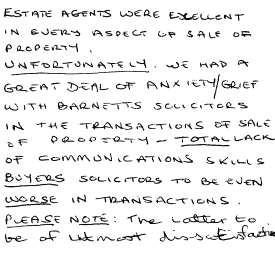 ESTATE AGENTS WERE EXCELLENT
IN EVERY ASPECT OF SALE OF
PROPERTY.
UNFORTUNATELY. WE HAD A
GREAT DEAL OF ANXIETY/GRIEF
WITH BARNETTS SOLICITORS
IN THE TRANSACTIONS OF SALE
OF PROPERTY - TOTAL LACK
OF COMMUNICATIONS SKILLS
BUYERS SOLICITORS TO BE EVEN
WORSE IN TRANSACTIONS.
PLEASE NOTE: The Latter to
be of utmost dissatisfaction